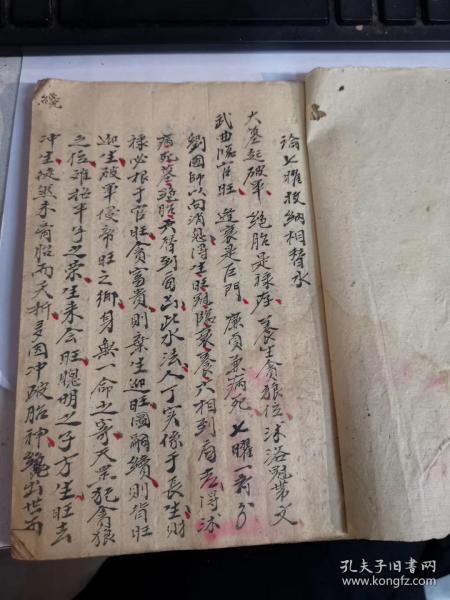 論七曜收納相替水
大墓起破軍 絕胎是祿存 養生貪狼位 沐浴冠帶文
武曲臨官旺 逆衰是巨門 廉貞兼病死 七曜一齊分
劉國師以向消息得生旺冠臨衰養六相到局去得沐
病死墓絕胎六替到局此水法人丁实係于長生財
祿必根于官旺貪富貴則棄生迎旺圖嗣續則背旺
迎生破軍侵帝旺之鄉身無一命之寄天罡犯貪狼
之位难招半子之榮生来会旺聰明之子方生旺去
冲生徒然未育胎而夭折多因冲破胎神絕出世而
孔夫子旧书网
www.kongfz.com